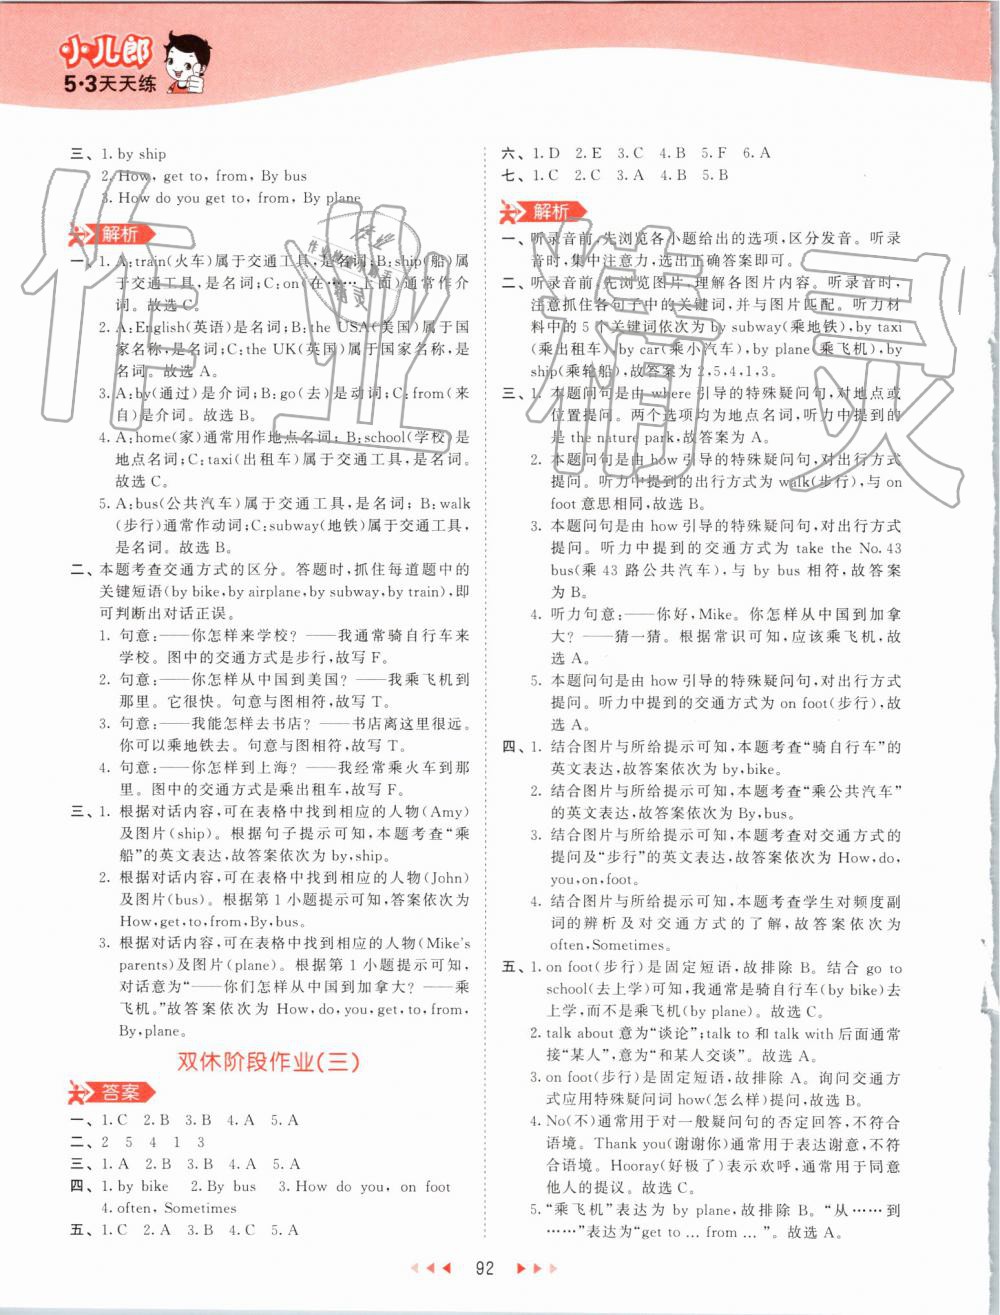 小儿郎
5·3天天练
三、1. by ship
2. How, get to, from, By bus
3. How do you get to, from, By plane
解析
一、1. A:train(火车)属于交通工具,是名词;B:ship(船)属
于交通工具,是名词;C:on(在……上面)通常作介
词。故选C。
2. A:English(英语)是名词;B:the USA(美国)属于国
家名称,是名词;C:the UK(英国)属于国家名称,是
名词。故选 A。
3. A:by(通过)是介词;B:go(去)是动词;C:from(来
自)是介词。故选 B。
4. A:home(家)通常用作地点名词;B:school(学校)是
地点名词;C:taxi(出租车)属于交通工具,是名词。
故选 C。
5. A:bus(公共汽车)属于交通工具,是名词;B:walk
(步行)通常作动词;C:subway(地铁)属于交通工具,
是名词。故选 B。
二、本题考查交通方式的区分。答题时,抓住每道题中的
关键短语(by bike,by airplane,by subway,by train),即
可判断出对话正误。
1. 句意:——你怎样来学校? ——我通常骑自行车来
学校。图中的交通方式是步行,故写 F。
2. 句意:——你怎样从中国到美国? ——我乘飞机到
那里。它很快。句意与图相符,故写 T。
3. 句意:——我能怎样去书店? ——书店离这里很远。
你可以乘地铁去。句意与图相符,故写 T。
4. 句意:——你怎样到上海? ——我经常乘火车到那
里。图中的交通方式是乘出租车,故写 F。
三、1. 根据对话内容,可在表格中找到相应的人物(Amy)
及图片(ship)。根据句子提示可知,本题考查“乘
船”的英文表达,故答案依次为 by,ship。
2. 根据对话内容,可在表格中找到相应的人物(John)
及图片(bus)。根据第 1 小题提示可知,答案依次为
How,get,to,from,By,bus。
3. 根据对话内容,可在表格中找到相应的人物(Mike's
parents)及图片(plane)。根据第 1 小题提示可知,
对话意为“——你们怎样从中国到加拿大? ——乘
飞机。”故答案依次为 How,do,you,get,to,from,
By,plane。
双休阶段作业(三)
答案
一、1. C 2. B 3. B 4. A 5. A
二、2 5 4 1 3
三、1. A 2. B 3. B 4. A 5. A
四、1. by bike 2. By bus 3. How do you, on foot
4. often, Sometimes
五、1. C 2. A 3. B 4. C 5. A
六、1. D 2. E 3. C 4. B 5. F 6. A
七、1. C 2. C 3. A 4. B 5. B
解析
一、听录音前,先浏览各小题给出的选项,区分发音。听录
音时,集中注意力,选出正确答案即可。
二、听录音前,先浏览图片,理解各图片含义。听录音时,
注意抓住各句子中的关键词,并与图片匹配。听力材
料中的 5 个关键词依次为 by subway(乘地铁),by taxi
(乘出租车),by car(乘小汽车),by plane(乘飞机),by
ship(乘轮船),故答案为 2,5,4,1,3。
三、1. 本题问句是由 where 引导的特殊疑问句,对地点或
位置提问。两个选项均为地点名词,听力中提到的
是 the nature park,故答案为 A。
2. 本题问句是由 how 引导的特殊疑问句,对出行方式
提问。听力中提到的出行方式为 walk(步行),与 on
foot 意思相同,故选 B。
3. 本题问句是由 how 引导的特殊疑问句,对出行方式
提问。听力中提到的交通方式为 take the No. 43
bus(乘 43 路公共汽车),与 by bus 相符,故答案
为 B。
4. 听力句意:——你好,Mike。你怎样从中国到加拿
大? ——猜一猜。根据常识可知,应该乘飞机,故
选 A。
5. 本题问句是由 how 引导的特殊疑问句,对出行方式
提问。听力中提到的交通方式为 on foot(步行),故
选 A。
四、1. 结合图片与所给提示可知,本题考查“骑自行车”的
英文表达,故答案依次为 by,bike。
2. 结合图片与所给提示可知,本题考查“乘公共汽车”
的英文表达,故答案依次为 By,bus。
3. 结合图片与所给提示可知,本题考查对交通方式的
提问及“步行”的英文表达,故答案依次为 How,do,
you,on,foot。
4. 结合图片与所给提示可知,本题考查学生对频度副
词的辨析及对交通方式的了解,故答案依次为
often,Sometimes。
五、1. on foot(步行)是固定短语,故排除 B。结合 go to
school(去上学)可知,我通常是骑自行车(by bike)去
上学,而不是乘飞机(by plane)。故选 C。
2. talk about 意为“谈论”;talk to 和 talk with 后面通常
接“某人”,意为“和某人交谈”。故选 A。
3. on foot(步行)是固定短语,故排除 A。询问交通方
式应用特殊疑问词 how(怎么样)提问,故选 B。
4. No(不)通常用于对一般疑问句的否定回答,不符合
语境。Thank you(谢谢你)通常用于表达谢意,不符
合语境。Hooray(好极了)表示欢呼,通常用于同意
他人的提议。故选 C。
5. “乘飞机”表达为 by plane,故排除 B。“从……到
……”表达为“get to ... from ... ”。故选 A。
92
作业精灵